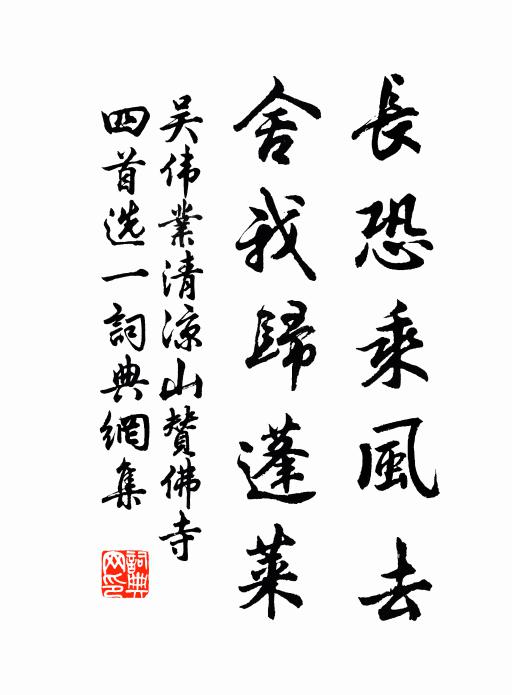 長恐乘風去
舍我歸蓬萊
吴伟業清涼山贊佛寺
四首选一詞典網集
詞典
网印